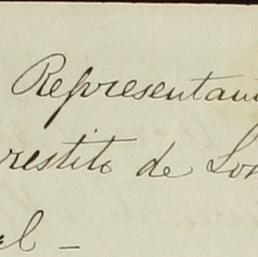 Representan
restito de Lon
el –